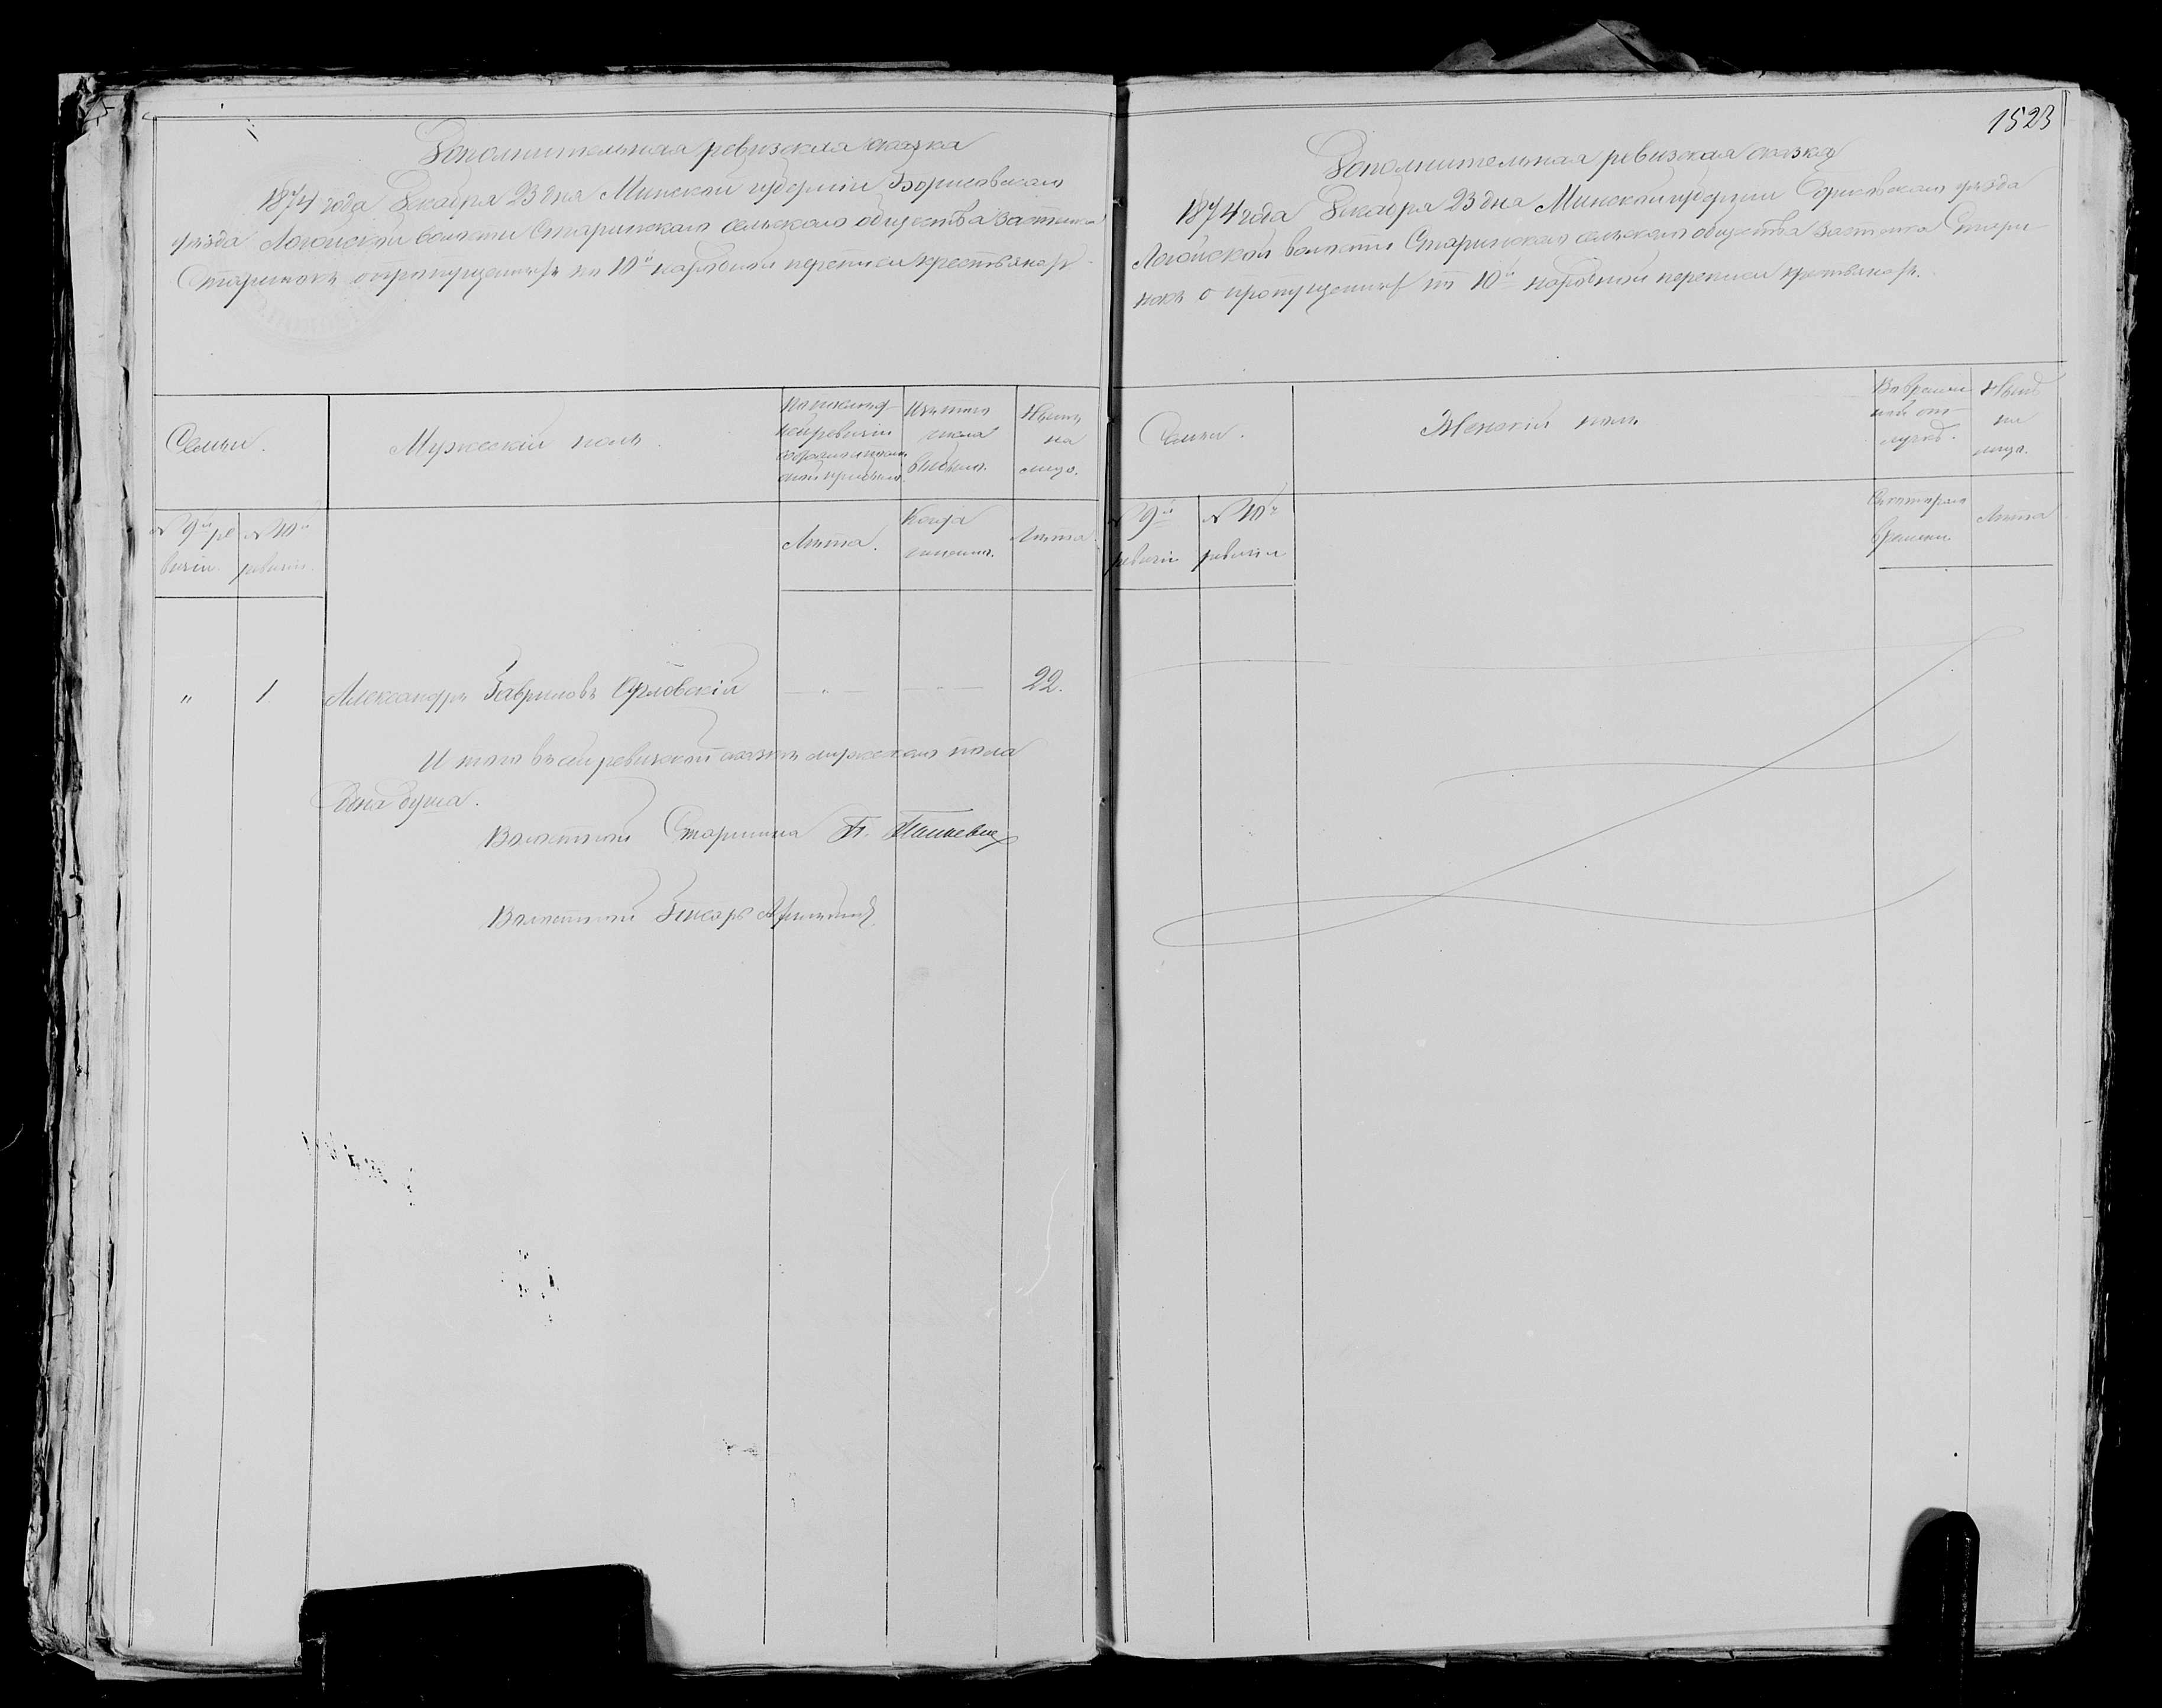 Дополнительная ревизская сказка
1874 года Декабря 23 дня Минской губернии Борисовскаго
уѣзда Логойской волости Старинскаго сельскаго общества застѣнка
Старинокъ о пропущенныхъ по 10й народной переписи крестьянахъ
Семьи.
Мужескій полъ.
По послѣд-
ней ревизіи
Изъ того
числа
выбыло.
Нынѣ
на
лицо.
№ 9й ре
визіи.
№ 10й
ревизіи.
Лѣта.
Когда
именно.
Лѣта.
„ 1 Александръ Гавриловъ Орловскій — — 22.
Итого въ сей ревизской сказкѣ мужескаго пола
одна душа.
Волостной Старшина П.
Волостной Писарь
1523
Дополнительная ревизская сказка
1874 года Декабря 23 дня Минской губерніи Борисовскаго уѣзда
Логойской волости Старинскаго сельскаго общества застѣнка Стари-
нокъ о пропущенныхъ по 10й народной переписи крестьянахъ.
Семьи.
Женскій полъ
Во времен-
ной от-
лучкѣ.
Нынѣ
на
лицо.
№ 9й
ревизіи
№ 10й
ревизіи
Съ котораго
времени.
Лѣта